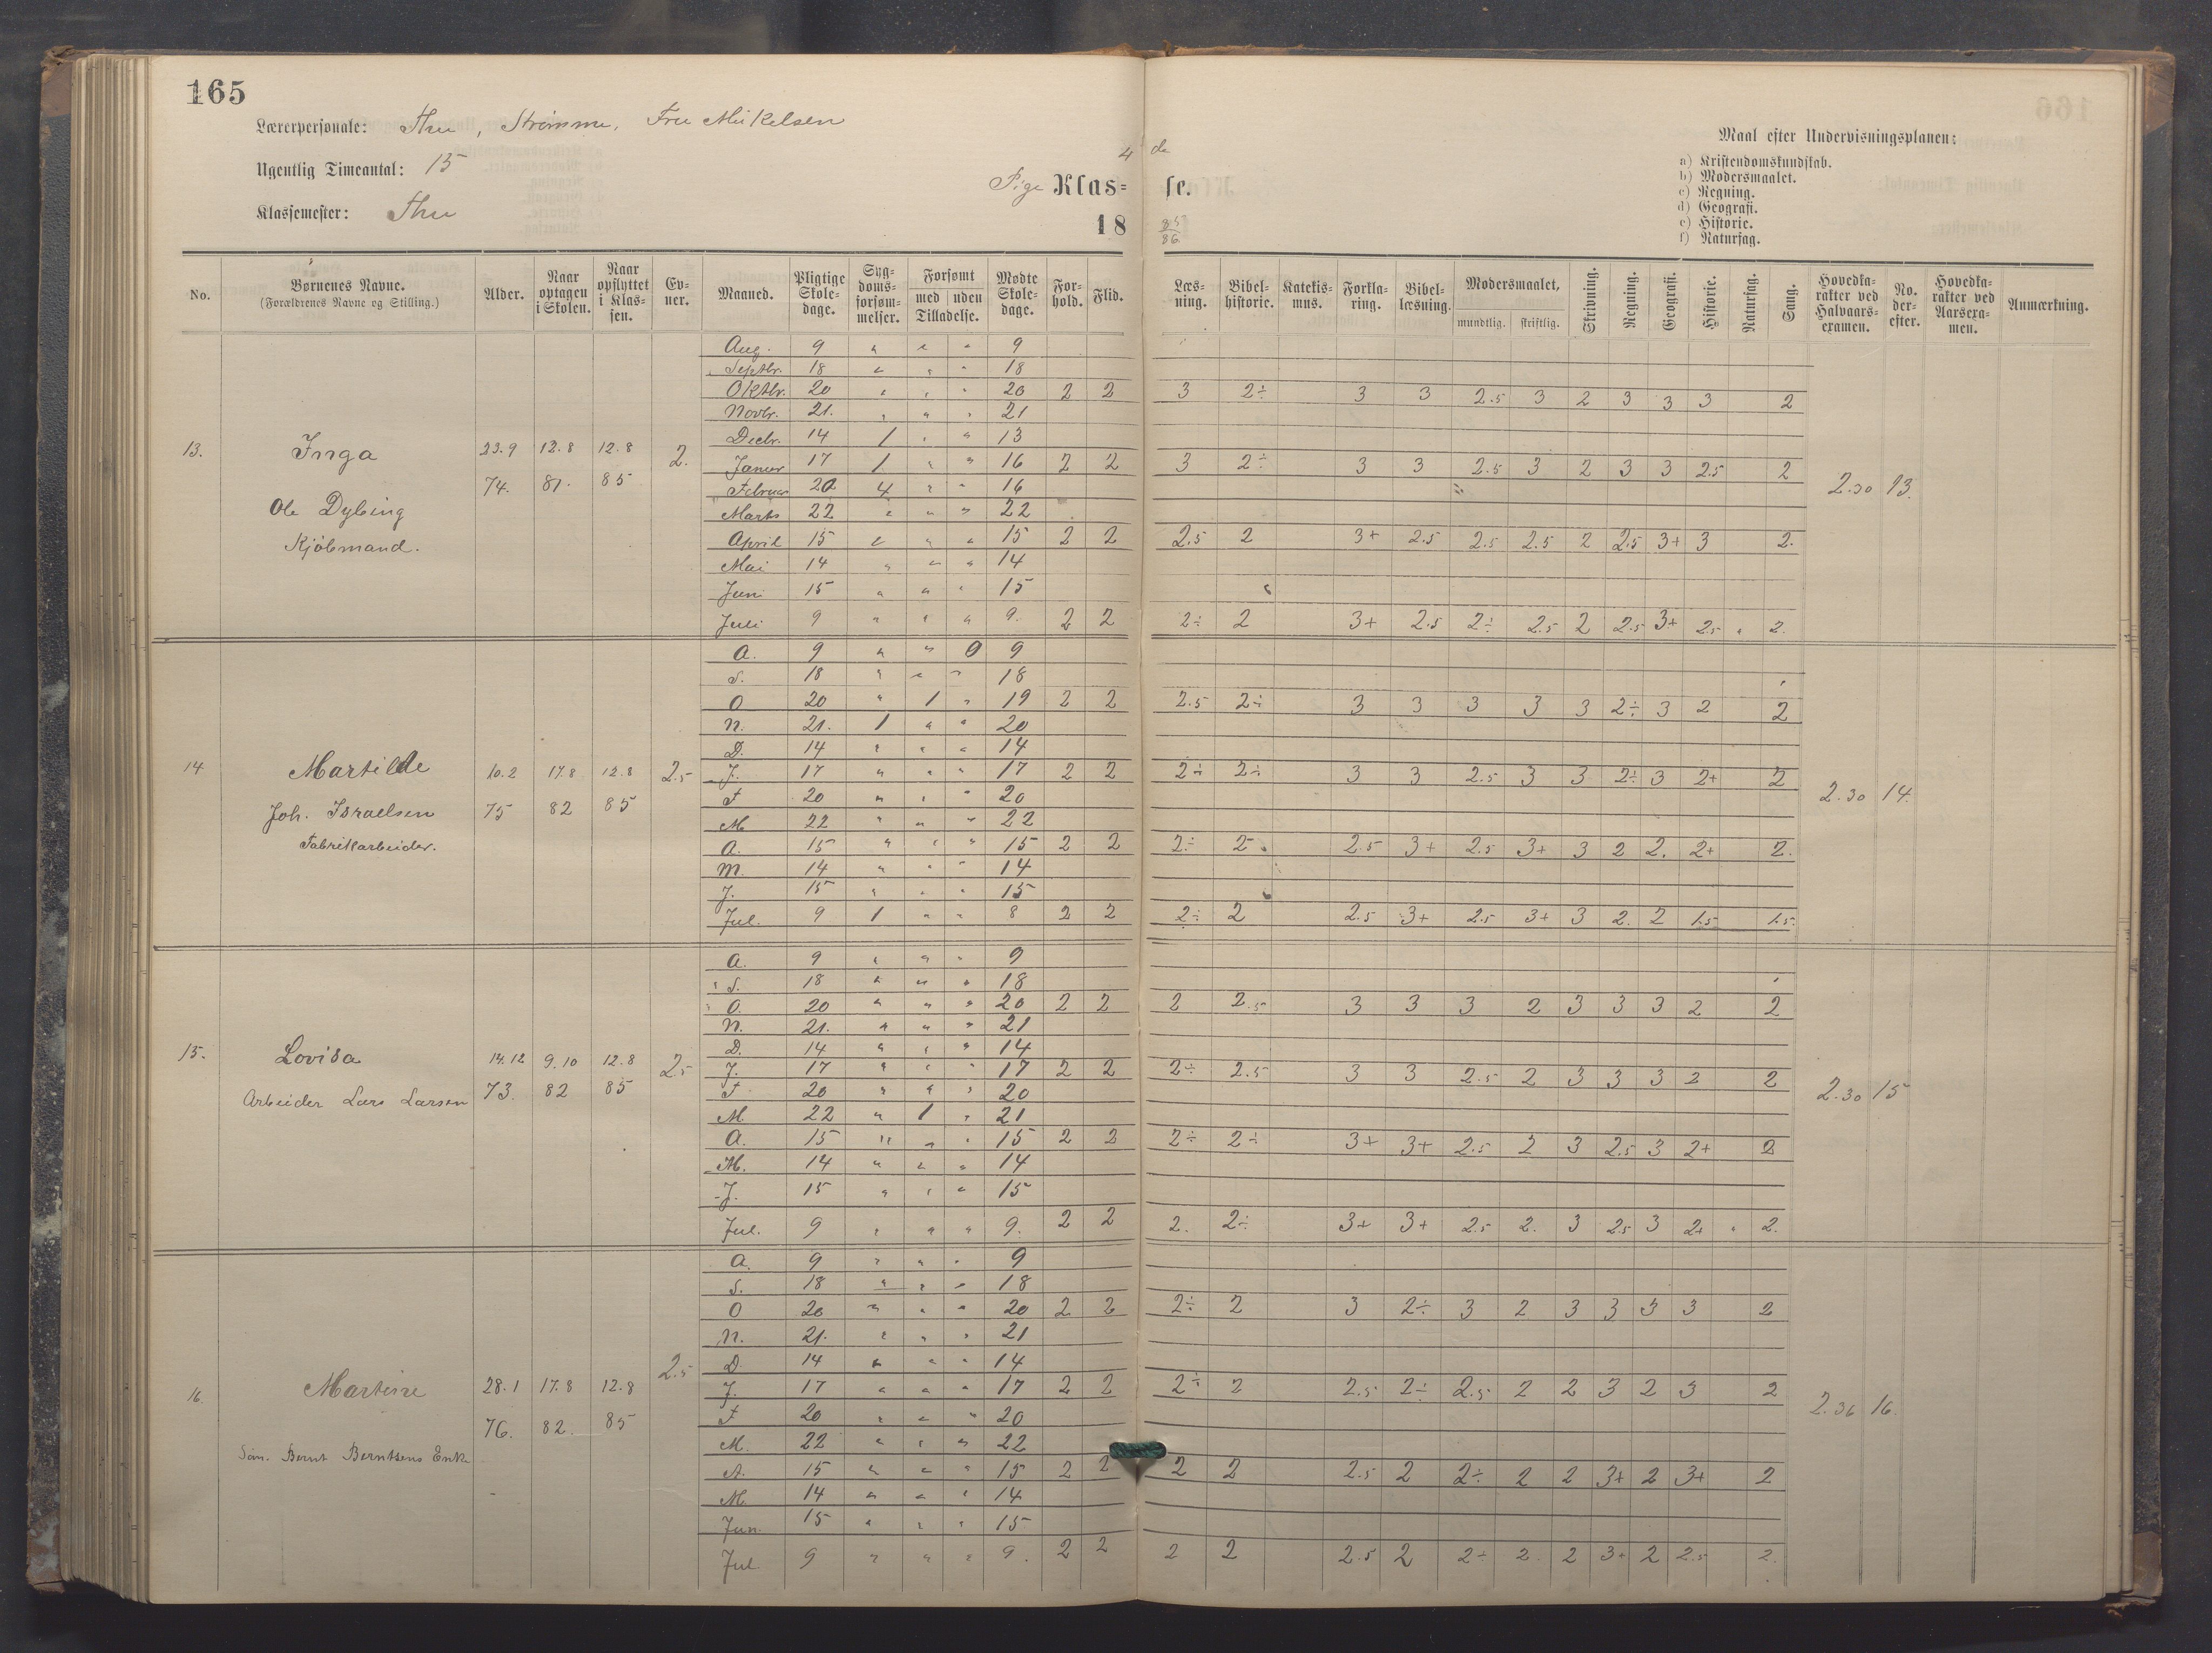 165
Lærerpersonale: Thu, Strømme, Fru Mikelsen
Ugentlig Timeantal: 15
Klassemester: Thu
4 de
Pige Klas= se.
18 85/86
Maal efter Undervisningsplanen:
a) Kristendomskundskab.
b) Modersmaalet.
c) Regning.
d) Geografi.
e) Historie.
f) Naturfag.
No. | Børnenes Navne. (Forældrenes Navne og Stilling.) | Alder. | Naar optagen i Skolen. | Naar opflyttet i Klassen. | Evner. | Maaned. | Pligtige Skoledage. | Sygdomsforsømmelser. | Forsømt med Tilladelse. | uden Tilladelse. | Mødte Skoledage. | Forhold. | Flid. | Læsning. | Bibelhistorie. | Katekismus. | Forklaring. | Bibellæsning. | Modersmaalet, mundtlig. | skriftlig. | Skrivning. | Regning. | Geografi. | Historie. | Naturfag. | Sang. | Hovedkarakter ved Halvaarsexamen. | No. derefter. | Hovedkarakter ved Aarsexamen. | Anmærkning.
13. Inga 23.9 74. 12.8 81. 12.8 85 2. 2.30 13.
Ole Dybing
Kjøbmand.
Aug. 9 " " " 9
Septbr. 18 " " " 18
Oktbr. 20 " " " 20 2 2 3 2÷ 3 3 2.5 3 2 3 3 3 2
Novbr. 21. " " " 21
Decbr. 14 1 " " 13
Januar 17 1 " " 16 2 2 3 2÷ 3 3 2.5 3 2 3 3 2.5 2
Februar 20 4 " " 16
Marts 22 " " " 22
April 15 " " " 15 2 2 2.5 2 3+ 2.5 2.5 2.5 2 2.5 3+ 3 2.
Mai 14 " " " 14
Juni 15 " " " 15
Juli 9 " " " 9. 2 2 2÷ 2 3+ 2.5 2÷ 2.5 2 2.5 3+ 2.5 " 2.
14 Martilde 10.2 75 17.8 82 12.8 85 2.5 2.30 14.
Joh. Israelsen
Fabrikarbeider.
A. 9 " " 0 9
S. 18 " " " 18
O 20 " 1 " 19 2 2 2.5 2÷ 3 3 3 3 3 2÷ 3 2 2
N. 21. 1 " " 20
D. 14 " " " 14
J. 17 " " " 17 2 2 2÷ 2÷ 3 3 2.5 3 3 2÷ 3 2+ 2
F 20 " " " 20
M 22 " " " 22
A. 15 " " " 15 2 2 2÷ 2 2.5 3+ 2.5 3+ 3 2 2. 2+ 2.
M. 14 " " " 14
J. 15 " " " 15
Jul. 9 1 " " 8 2 2 2÷ 2 2.5 3+ 2.5 3+ 3 2. 2 1.5 1.5.
15. Lovisa 14.12 73. 9.10 82 12.8 85 2.5 2.30 15
Arbeider Lars Larsen
A. 9 " " " 9
S. 18 " " " 18
O. 20 " " " 20 2 2 2 2.5 3 3 3 2 3 3 3 2 2
N. 21. " " " 21
D. 14 " " " 14
J. 17 " " " 17 2 2 2÷ 2.5 3 3 2.5 2 3 3 3 2 2
F. 20 " " " 20
M. 22 " 1 " 21
A. 15 " " " 15 2 2 2÷ 2÷ 3+ 3+ 2.5 2 3 2.5 3 2+ 2
M. 14 " " " 14
J. 15 " " " 15
Jul. 9 " " " 9. 2 2 2. 2÷ 3+ 3+ 2.5 2. 3 2.5 3 2+ " 2.
16. Martine 28.1 76. 17.8 82. 12.8 85 2.5 2.36 16.
Søm. Bernt Berntsens Enke
A. 9 " " " 9
S. 18 " " " 18
O 20 " " " 20 2 2 2÷ 2 3 2÷ 3 2 3 3 3 3 2
N. 21. " " " 21
D. 14 " " " 14
J. 17 " " " 17 2 2 2÷ 2 2.5 2÷ 2.5 2 2 3 2 3 2
F 20 " " " 20
M. 22 " " " 22
A. 15 " " " 15 2 2 2 2 2.5 2 2÷ 2 2 3+ 2 3+ 2
M. 14 " " " 14
Jun. 15 " " " 15
Jul 9 " " " 9. 2 2 2 2 2.5 2 2÷ 2. 2 3+ 2 2.5 2.